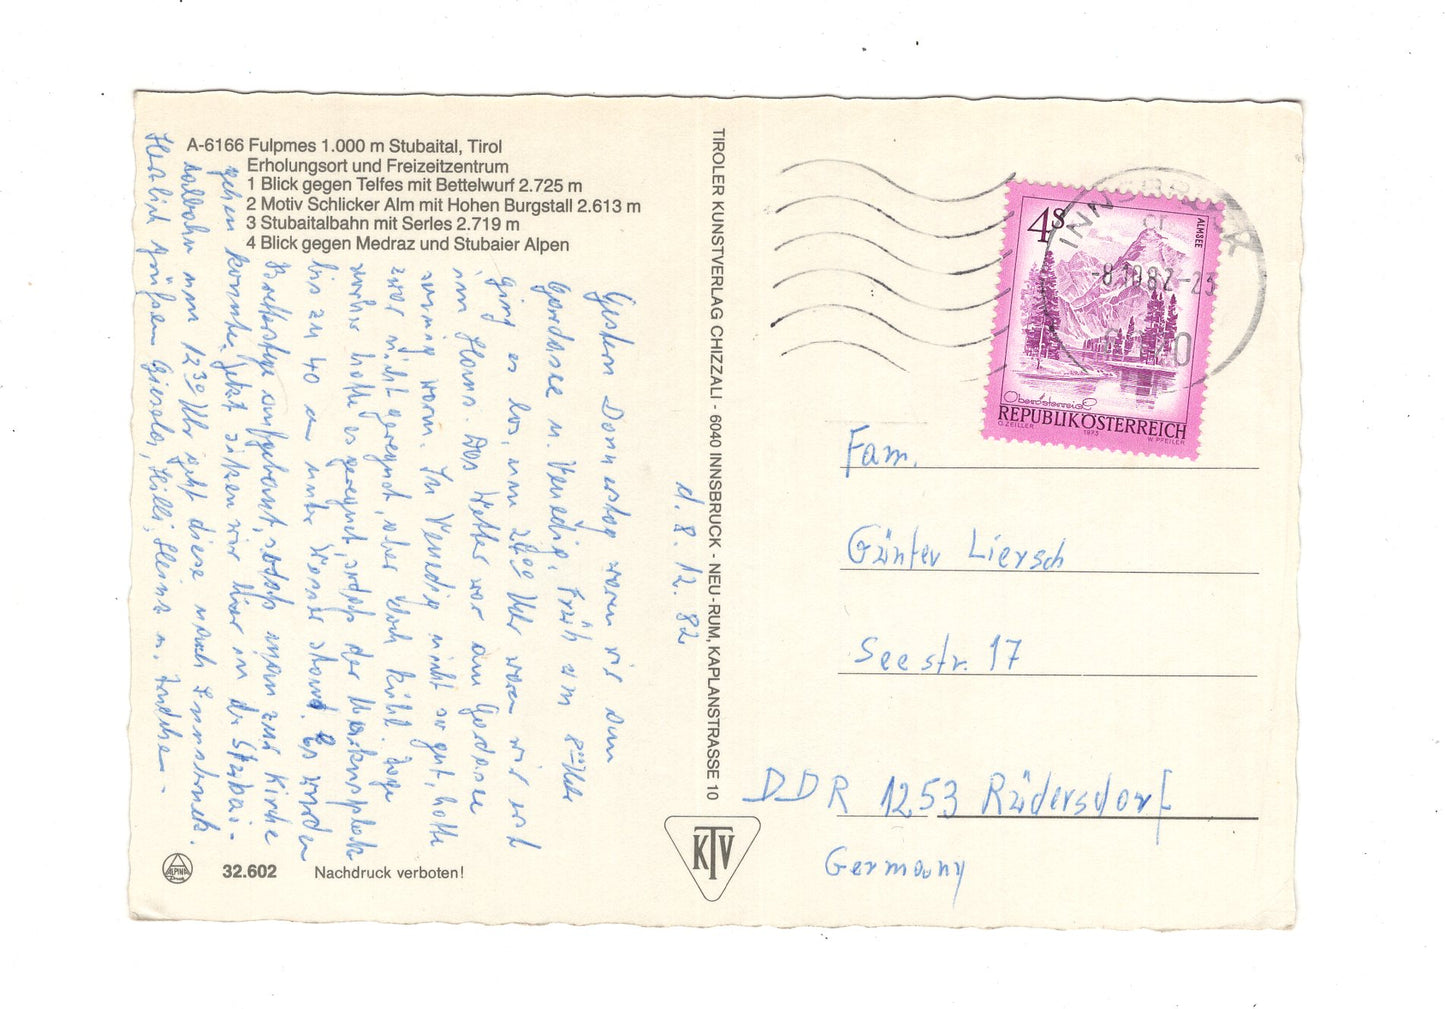 A-6166 Fulpmes 1.000 m Stubaital, Tirol
Erholungsort und Freizeitzentrum
1 Blick gegen Telfes mit Bettelwurf 2.725 m
2 Motiv Schlicker Alm mit Hohen Burgstall 2.613 m
3 Stubaitalbahn mit Serles 2.719 m
4 Blick gegen Medraz und Stubaier Alpen
d. 8. 12. 82
Gestern Donnerstag waren wir am
Gardasee u. Venedig. Früh um
ging es los, um 24⁰⁰ Uhr waren wir erst
im Haus. Das Wetter war am Gardasee
sonnig warm. In Venedig nicht so gut, hatte
zwar nicht geregnet, aber doch kühl. Tage
vorher hatte es geregnet, sodaß der Markusplatz
bis zu 40 cm unter Wasser stand. Es wurden
Brettstege aufgebaut, sodaß man zur Kirche
gehen konnte. Jetzt sitzen wir hier in der Stubai-
talbahn um 12³⁰ Uhr geht diese nach Innsbruck.
Herzlich grüßen Gisela, Hilli, Heinz u.
TIROLER KUNSTVERLAG CHIZZALI - 6040 INNSBRUCK - NEU-RUM, KAPLANSTRASSE 10
KTV
ALPINA
Druck
32.602 Nachdruck verboten!
INNSBRUCK
-8.10.82-23
6020
4S
ALMSEE
Oberösterreich
REPUBLIK ÖSTERREICH
O. ZEILLER 1973 W. PFEILER
Fam.
Günter Liersch
Seestr. 17
DDR 1253 Rüdersdorf
Germany